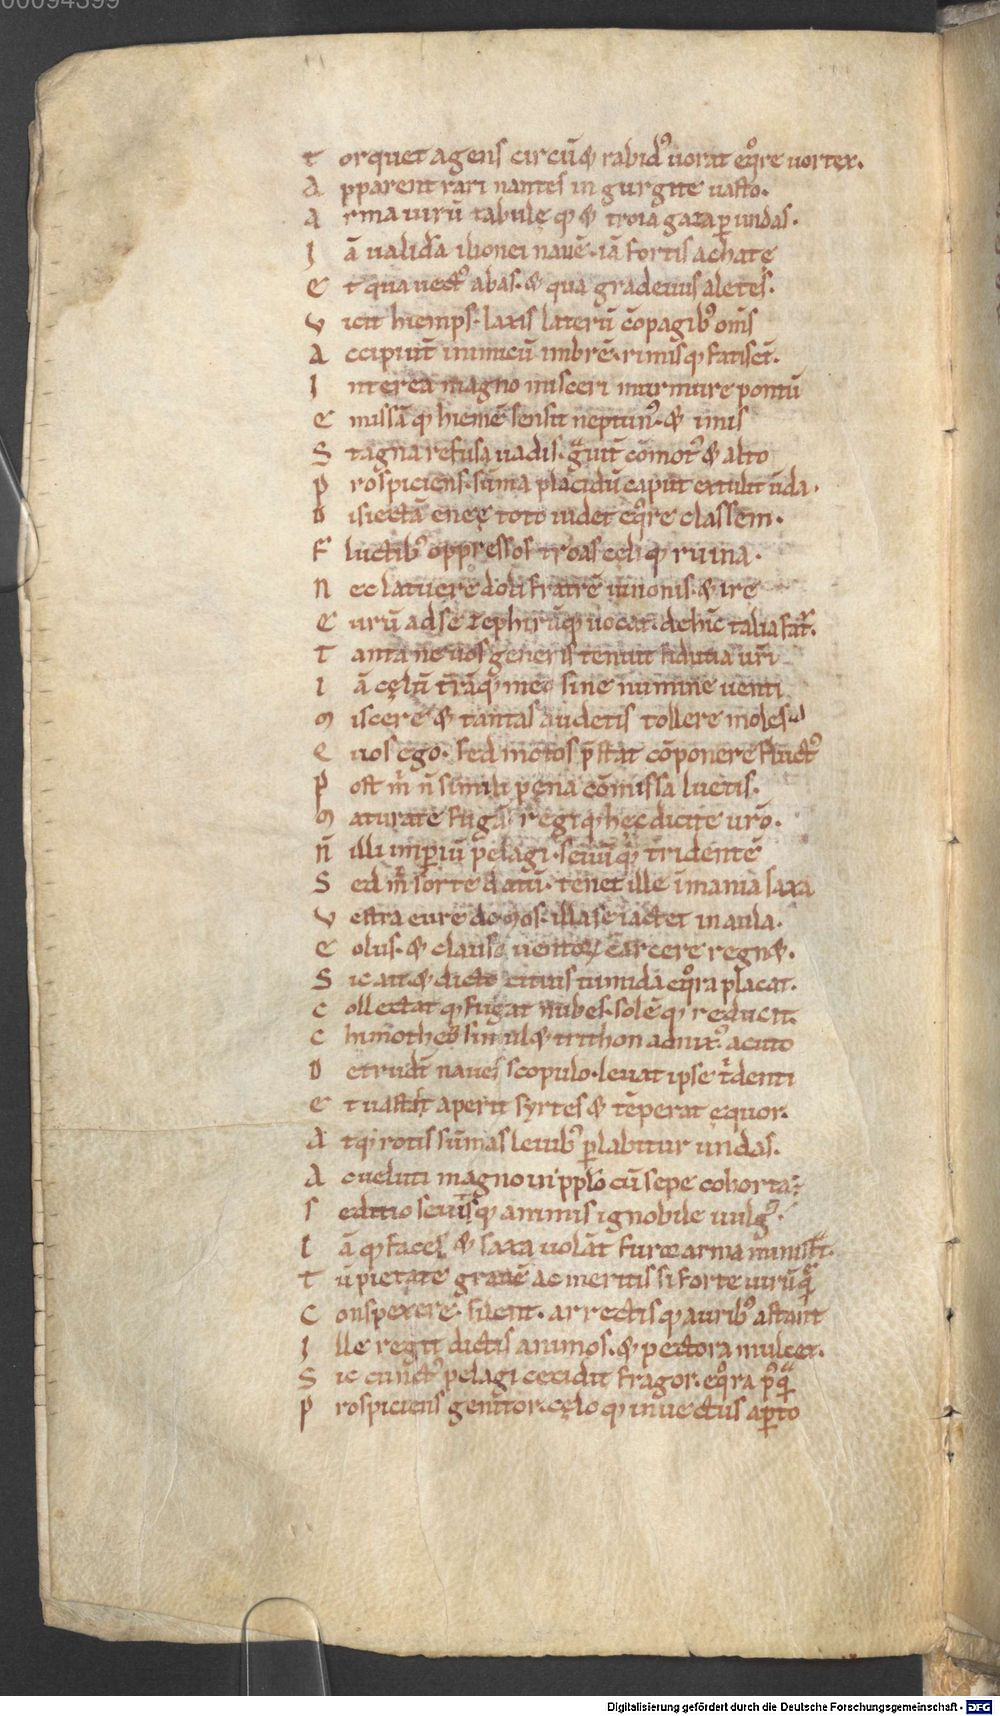 00094399
T orquet agens circū & rabid᷒ uorat eq̊re uortex.
A pparent rari nantes in gurgite uasto.
A rma uirū tabulę q; & troia gaza p̲ undas.
J ā ualidā ilionei nauē. iā fortis achatę
E t qua uect᷒ abas. & qua gradeuus aletes.
V icit hiemps. laxis laterū cōpagib᷒ om̄s
A ccipiunt̄ inimicū imbrē. rimisq; fatisct̄.
I nterea magno misceri murmure pontū
E missā q; hiemē sensit neptun᷒. & imis
S tagna refusa uadis. gͣuit̄ cōmot᷒ & alto
P rospiciens. sūma placidū caput extulit ūda.
D isiectā eneę toto uidet eq̊re classem.
F luctib᷒ oppressos troas cęliq; ruina.
N ec latuere doli fratrē iunonis. & ire
E urū ad se zephirūq; uocat. dehīc talia fat᷒.
T anta ne uos generis tenuit fidutia ur̄i
I ā cęlū tr̄āq; meo sine numine uenti
M iscere & tantas audetis tollere moles
E uos ego. sed motos p̄stat cōponere fluct᷒
P ost m̄ n̄ simili pęna cōmissa luetis.
M aturate fugā regiq; hęc dicite ur̄o.
N̄ illi imp̲iū pelagi. seuūq; tridentē
S ed m̄ sorte datū. tenet ille īmania saxa
V estra eure domos. illa se iactet in aula.
E olus. & clauso uentoꝝ carcere regn&.
S ic ait. & dicto citius tumida eq̊ra placat.
C ollectat q; fugat nubes. solēq; reducit.
C himothea simul & trithon adnix᷒ acuto
D etrudt̄ naues scopulo. leuat ipse tͥdenti
E t uastas aperit syrtes & tēperat ęquor.
A tq; rotis sūmas leuib᷒ p̲labitur undas.
A c ueluti magno in pp̄lo cū sepe cohorta
S editio seuitq; animis ignobile uulg᷒.
I ā q; faces & saxa uolāt furor arma ministͣt.
T ū pietate grauē ac meritis si forte uirū qͣ
C onspexere. silent. arrectisq; aurib᷒ astant
J lle regit dictis animos. & pectora mulcet.
S ic cunct᷒ pelagi cecidit fragor. eq̊ra p᷒qͣ
P rospiciens genitor. cęlo q; inuectus ap̲to
Digitalisierung gefördert durch die Deutsche Forschungsgemeinschaft - DFG